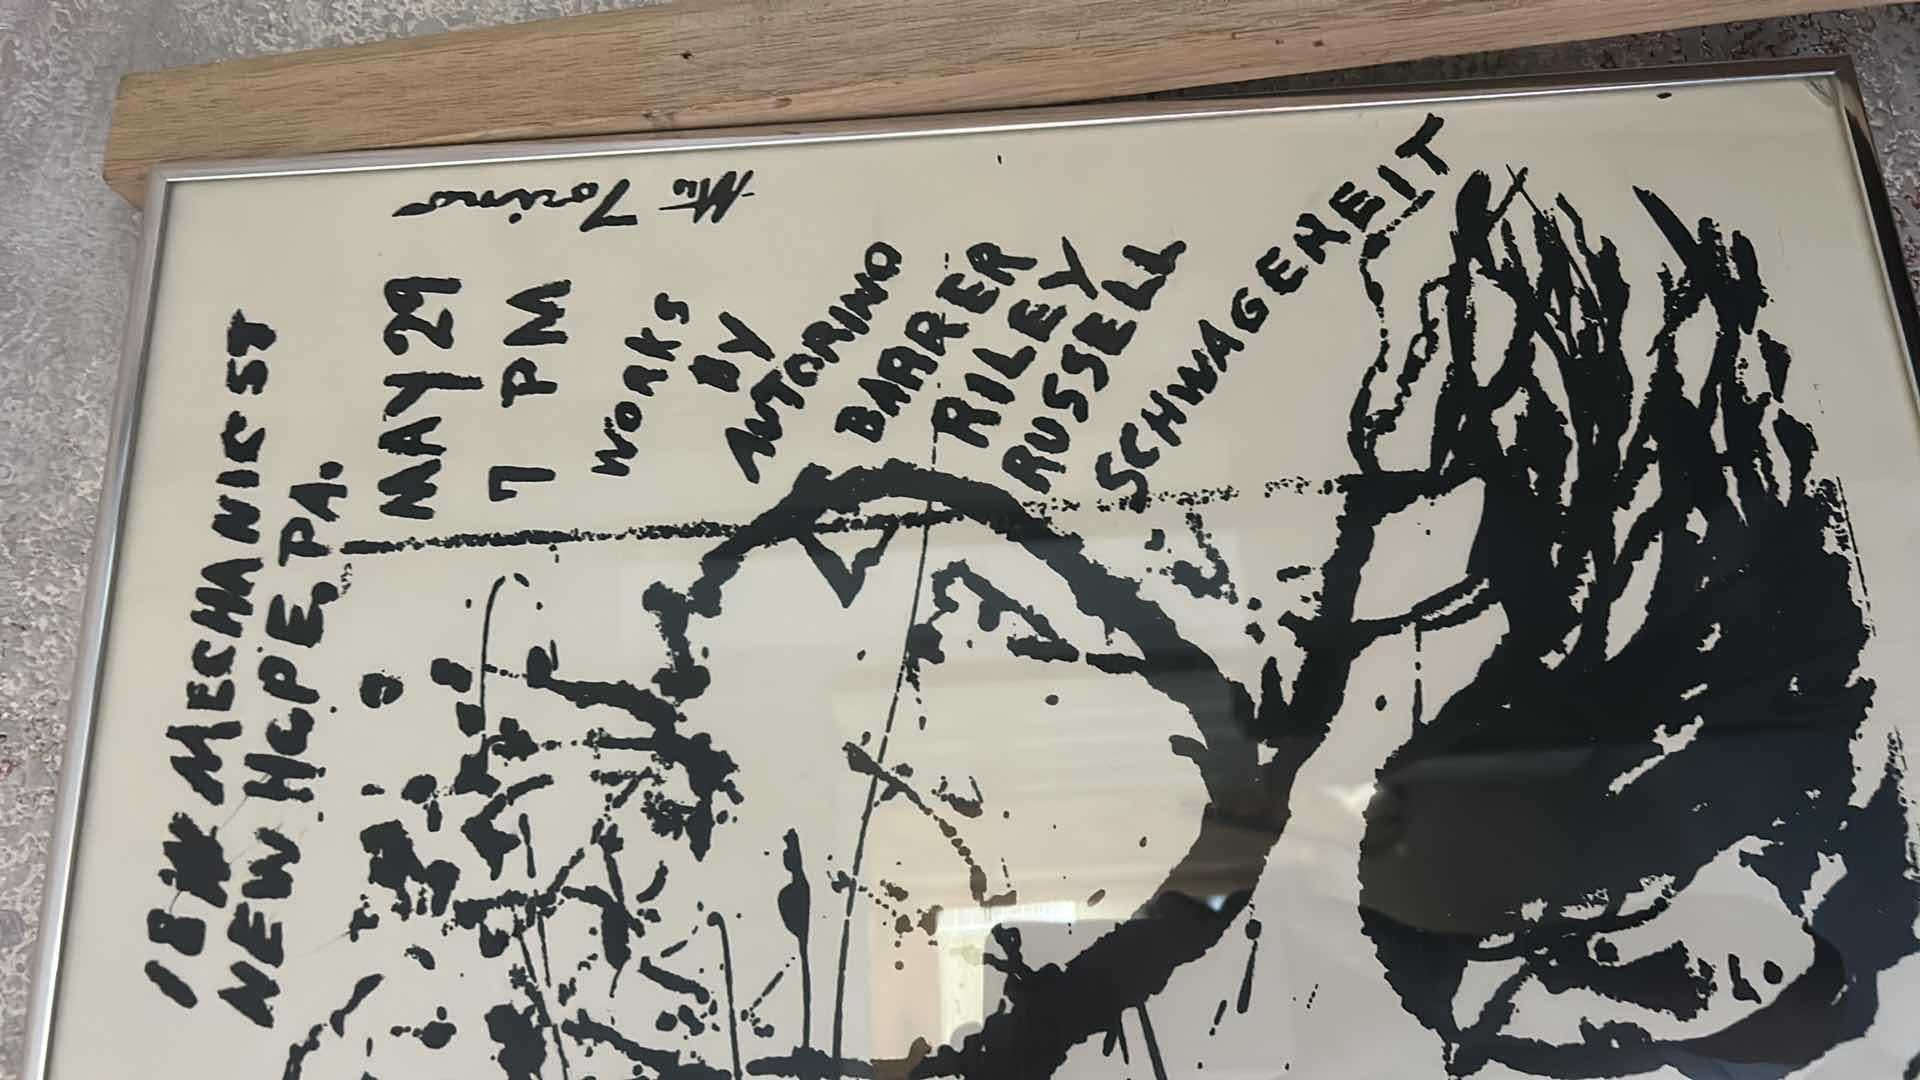 18W MECHANIC ST
NEW HOPE, PA.
MAY 29
7 PM
WORKS
BY
AUTORINO
BARRER
RILEY
RUSSELL
SCHWAGEHEIT